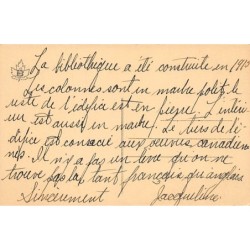 La bibliothèque a été construite en 19
Les colonnes sont en marbre poli et le
reste de l'édifice est en pierre. L'intéri-
eur est aussi en marbre. Le tiers de l'é-
difice est consacré aux oeuvres canadien-
nes. Il n'y a pas un livre qu'on ne
trouve pas là, tant français qu'anglais
Sincèrement
Jacqueline.